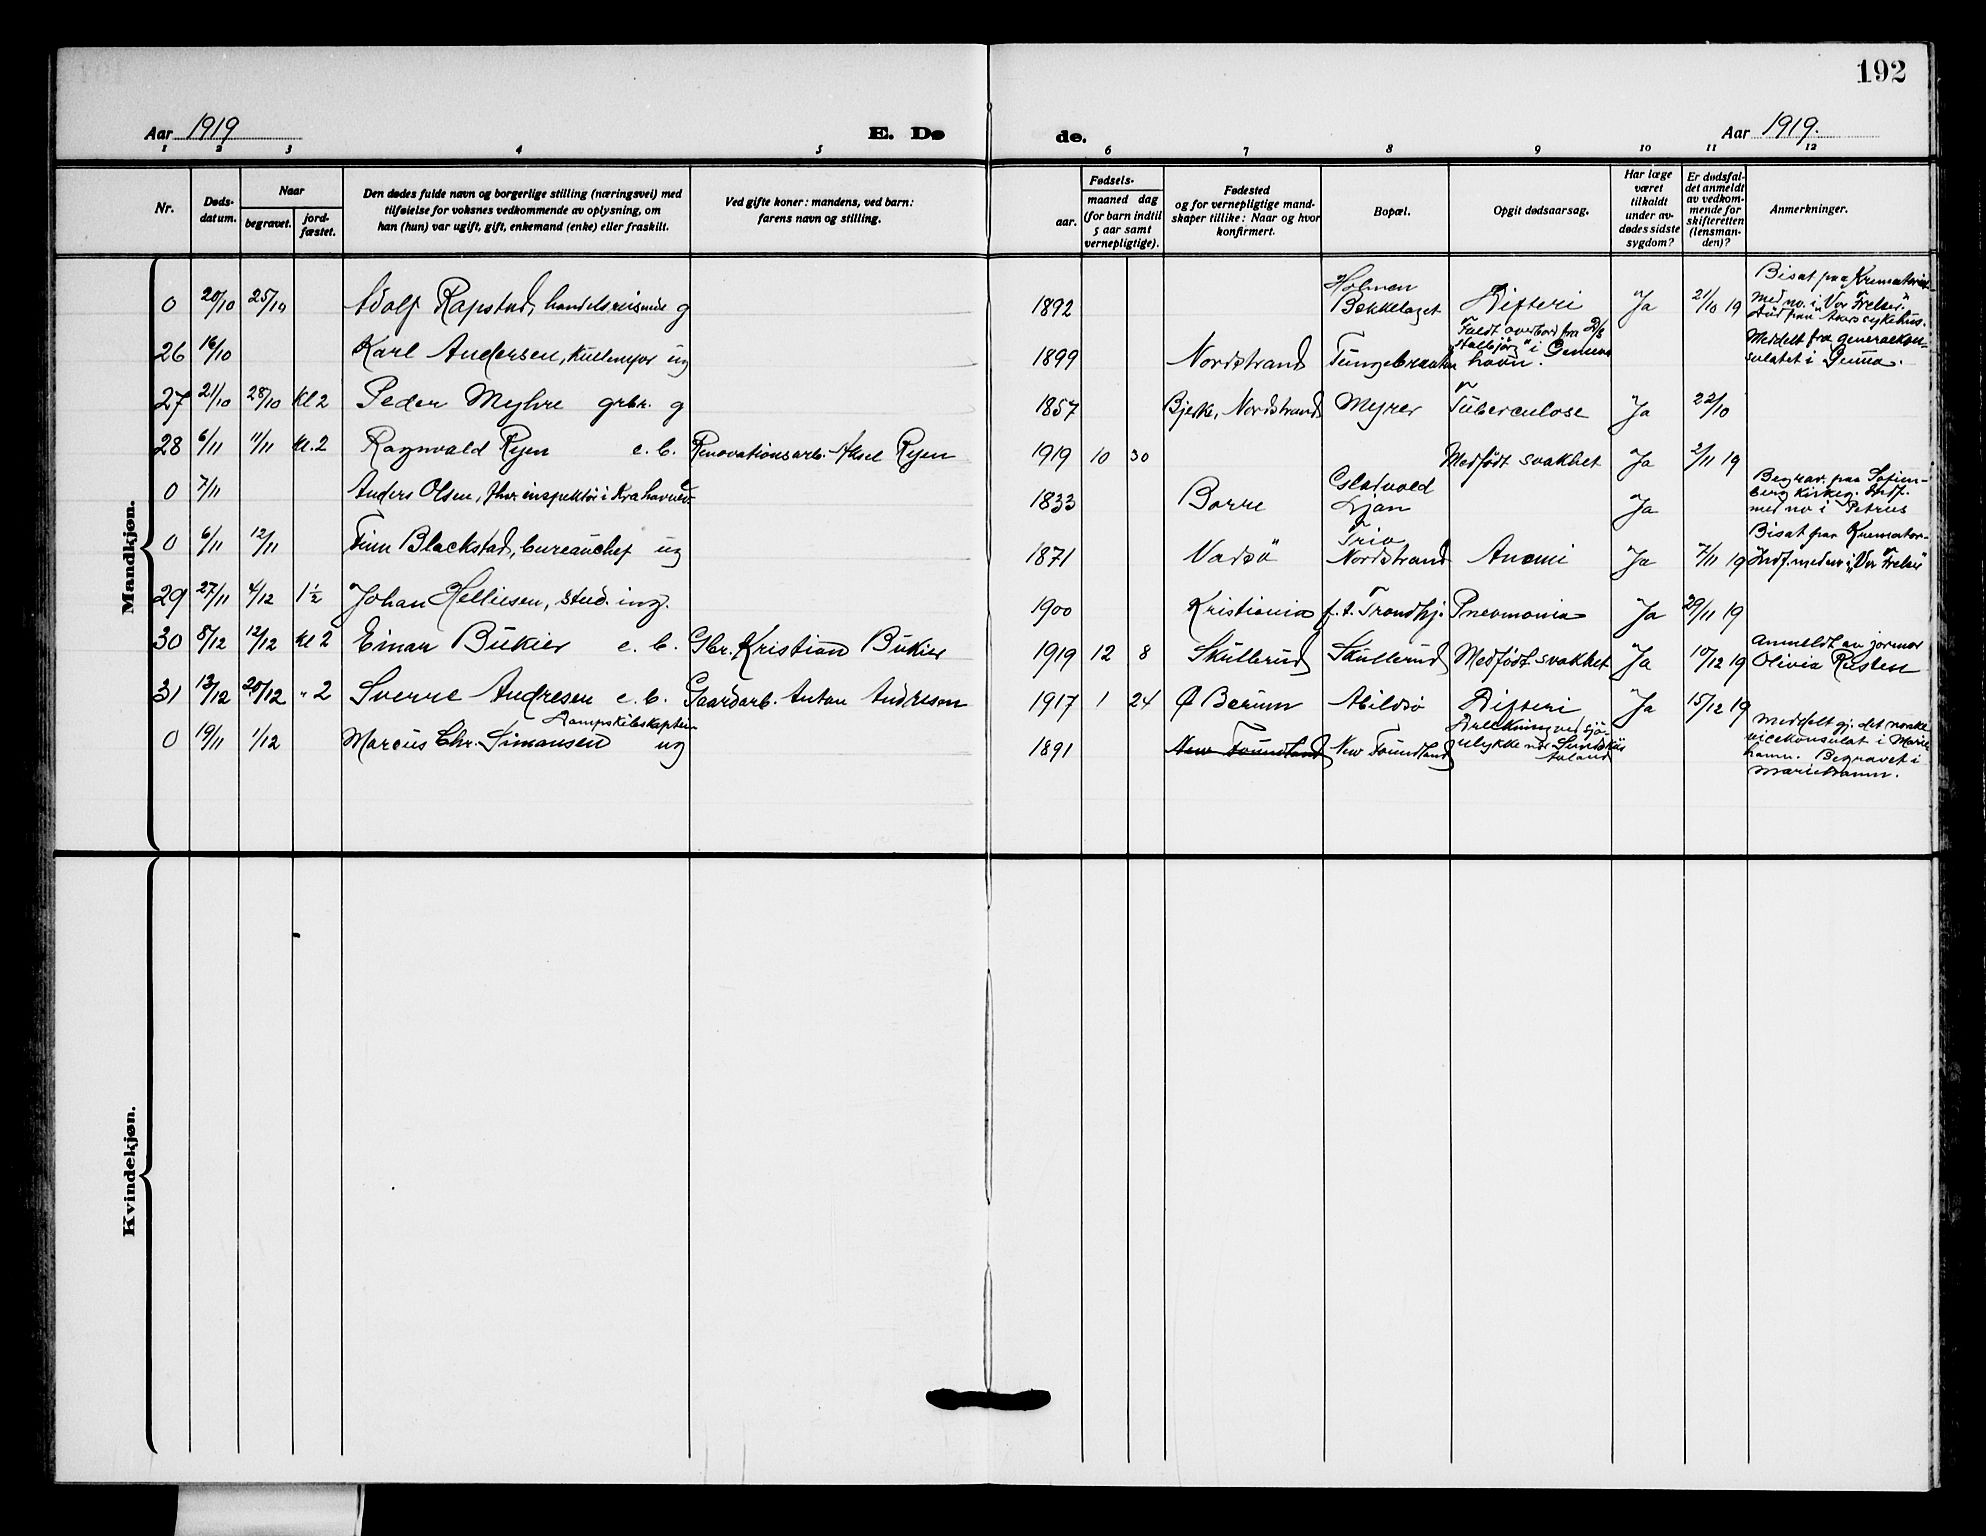 192
Aar 1919 E. Dø de. Aar 1919.
1 2 3 4 5 6 7 8 9 10 11 12
Nr.
Døds-
datum.
Naar
begravet.
jord-
fæstet.
Den dødes fulde navn og borgerlige stilling (næringsvei) med
tilføielse for voksnes vedkommende av oplysning, om
han (hun) var ugift, gift, enkemand (enke) eller fraskilt.
Ved gifte koner: mandens, ved barn:
farens navn og stilling.
Fødsels-
aar.
maaned dag
(for barn indtil
5 aar samt
vernepligtige).
Fødested
og for vernepligtige mand-
skaper tillike: Naar og hvor
konfirmert.
Bopæl.
Opgit dødsaarsag.
Har læge
været
tilkaldt
under av-
dødes sidste
sygdom?
Er dødsfal-
det anmeldt
av vedkom-
mende for
skifteretten
(lensman-
den)?
Anmerkninger.
Mandkjøn.
0 20/10 25/10 Adolf Rapstad, handelsreisende g 1892 Holmen Bekkelaget Difteri Ja 21/10 19 Bisat paa Krematoriet Med no. i "Vor Frelser". Død paa Akers sykehus.
26 16/10 Karl Andersen, kullemper ug 1899 Nordstrand Faldt overbord fra D/S i Genua havn. Meddelt fra generalkon-sulatet i Genua.
27 21/10 28/10 Kl 2 Peder Myhre grbr. g 1857 Bjerke, Nordstrand Myrer Tuberculose Ja 22/10
28 6/11 11/11 kl. 2 Ragnvald Ryen e. b. Renovationsarb. Aksel Ryen 1919 10 30 Medfödt svakhet Ja 2/11 19
0 7/11 Anders Olsen, fhv. inspektör i Kra havnev. 1833 Borre Ljan Ja Begrav. paa Sofien-berg kirkeg. Indf. med no i Petrus
0 6/11 12/11 Finn Blackstad, bureauchef ug 1871 Vadsö Trio Nordstrand Anemi Ja 7/11 19 Bisat paa Kremator- Indf. med no i "Vor Frelser"
29 27/11 4/12 1½ Johan Helliesen, stud. ing. 1900 Kristiania f. t. Trondhj. Pneumonia Ja 29/11 19
30 8/12 12/12 kl 2 Einar Bükier e. b. Gbr. Kristian Bükier 1919 12 8 Skullerud Skullerud Medfödt svakhet Ja 10/12 19 Anmeldt av jormor Olivia Rusten
31 13/12 20/12 " 2 Sverre Andresen e. b. Gaardarb. Anton Andresen 1917 1 24 Ø Bærum Abildsö Difteri Ja 15/12 19
0 19/11 1/12 Marcus Chr. Simonsen Dampskibskaptein ug 1891 New Foundland New Foundland Drukning ved sjö-ulykke ved Aaland Meddelt gj. det norske vicekonsulat i Marie hamn. Begravet i Mariehamn.
Kvindekjøn.